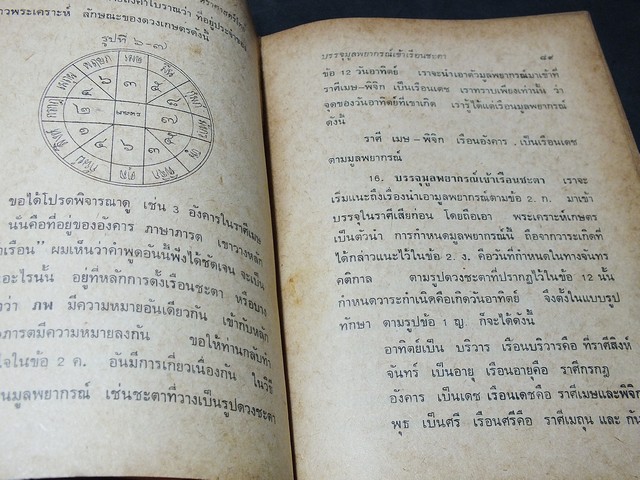 ที่อยู่ประจำ
าวพระเคราะห์ ลักษณะของดวงเกษตรดังนี้
รูปที่ ๖-๓
ขอได้โปรดพิจารณาดู เช่น 3 อังคารในราศีเมษ
นั่นคือที่อยู่ขององคาร ภาษาภารต เขาวางหลัก
งเรือน" ผมเห็นว่าคำพูดอันนี้พึงได้ชัดเจน จะเป็น
อะไรนั้น อยู่ที่หลักการตั้งเรือนชะตา หรือบาง
ว่า ภพ มีความหมายอันเดียวกัน เข้ากับหลัก
ภารตมีความหมายลงกัน ขอให้ท่านกลับทำ
ใจในข้อ 2 ค. อันมีการเกี่ยวเนื่องกัน ในวิธี
นมูลพยากรณ์ เช่นชะตาที่วางเป็นรูปดวงชะตา
บรรจุมูลพยากรณ์เข้าเรือนชะตา ๔๙
ข้อ 12 วันอาทิตย์ เราจะนำเอาตัวมูลพยากรณ์มาเข้าที่
ราศีเมษ-พิจิก เป็นเรือนเดช เราทราบเพียงเท่านั้น ว่า
จุดของวันอาทิตย์ที่เขาเกิด เรารู้ได้แต่เรือนมูลพยากรณ์
ดังนี้
ราศี เมษ-พิจิก เรือนอังคาร . เป็นเรือนเดช
ตามมูลพยากรณ์
16. บรรจุมูลพยากรณ์เข้าเรือนชะตา เราจะ
เริ่มแนะถึงเรื่องนำเอามูลพยากรณ์ตามข้อ 2. ก. มาเข้า
บรรจุในราศีเสียก่อน โดยถือเอา พระเคราะห์เกษตร
เป็นตัวนำ การกำหนดมูลพยากรณ์นี้ ถือจากวาระเกิดที่
ได้กล่าวแนะไว้ในข้อ 2. ง. คือวันที่กำหนดในทางจันทร
คติกาล ตามรูปดวงชะตาที่ปรากฏไว้ในข้อ 12 นั้น
กำหนดวาระกำเนิดคือเกิดวันอาทิตย์ จึงตั้งในแบบรูป
ทักษา ตามรูปข้อ 1 ญ. ก็จะได้ดังนี้
อาทิตย์เป็น บริวาร เรือนบริวารคือ ที่ราศีสิงห์
จันทร์ เป็นอายุ เรือนอายุคือ ราศีกรกฎ
อังคาร เป็นเดช เรือนเดชคือ ราศีเมษและพิจิก
พุธ เป็นศรี เรือนศรีคือ ราศีเมถุน และ กัน